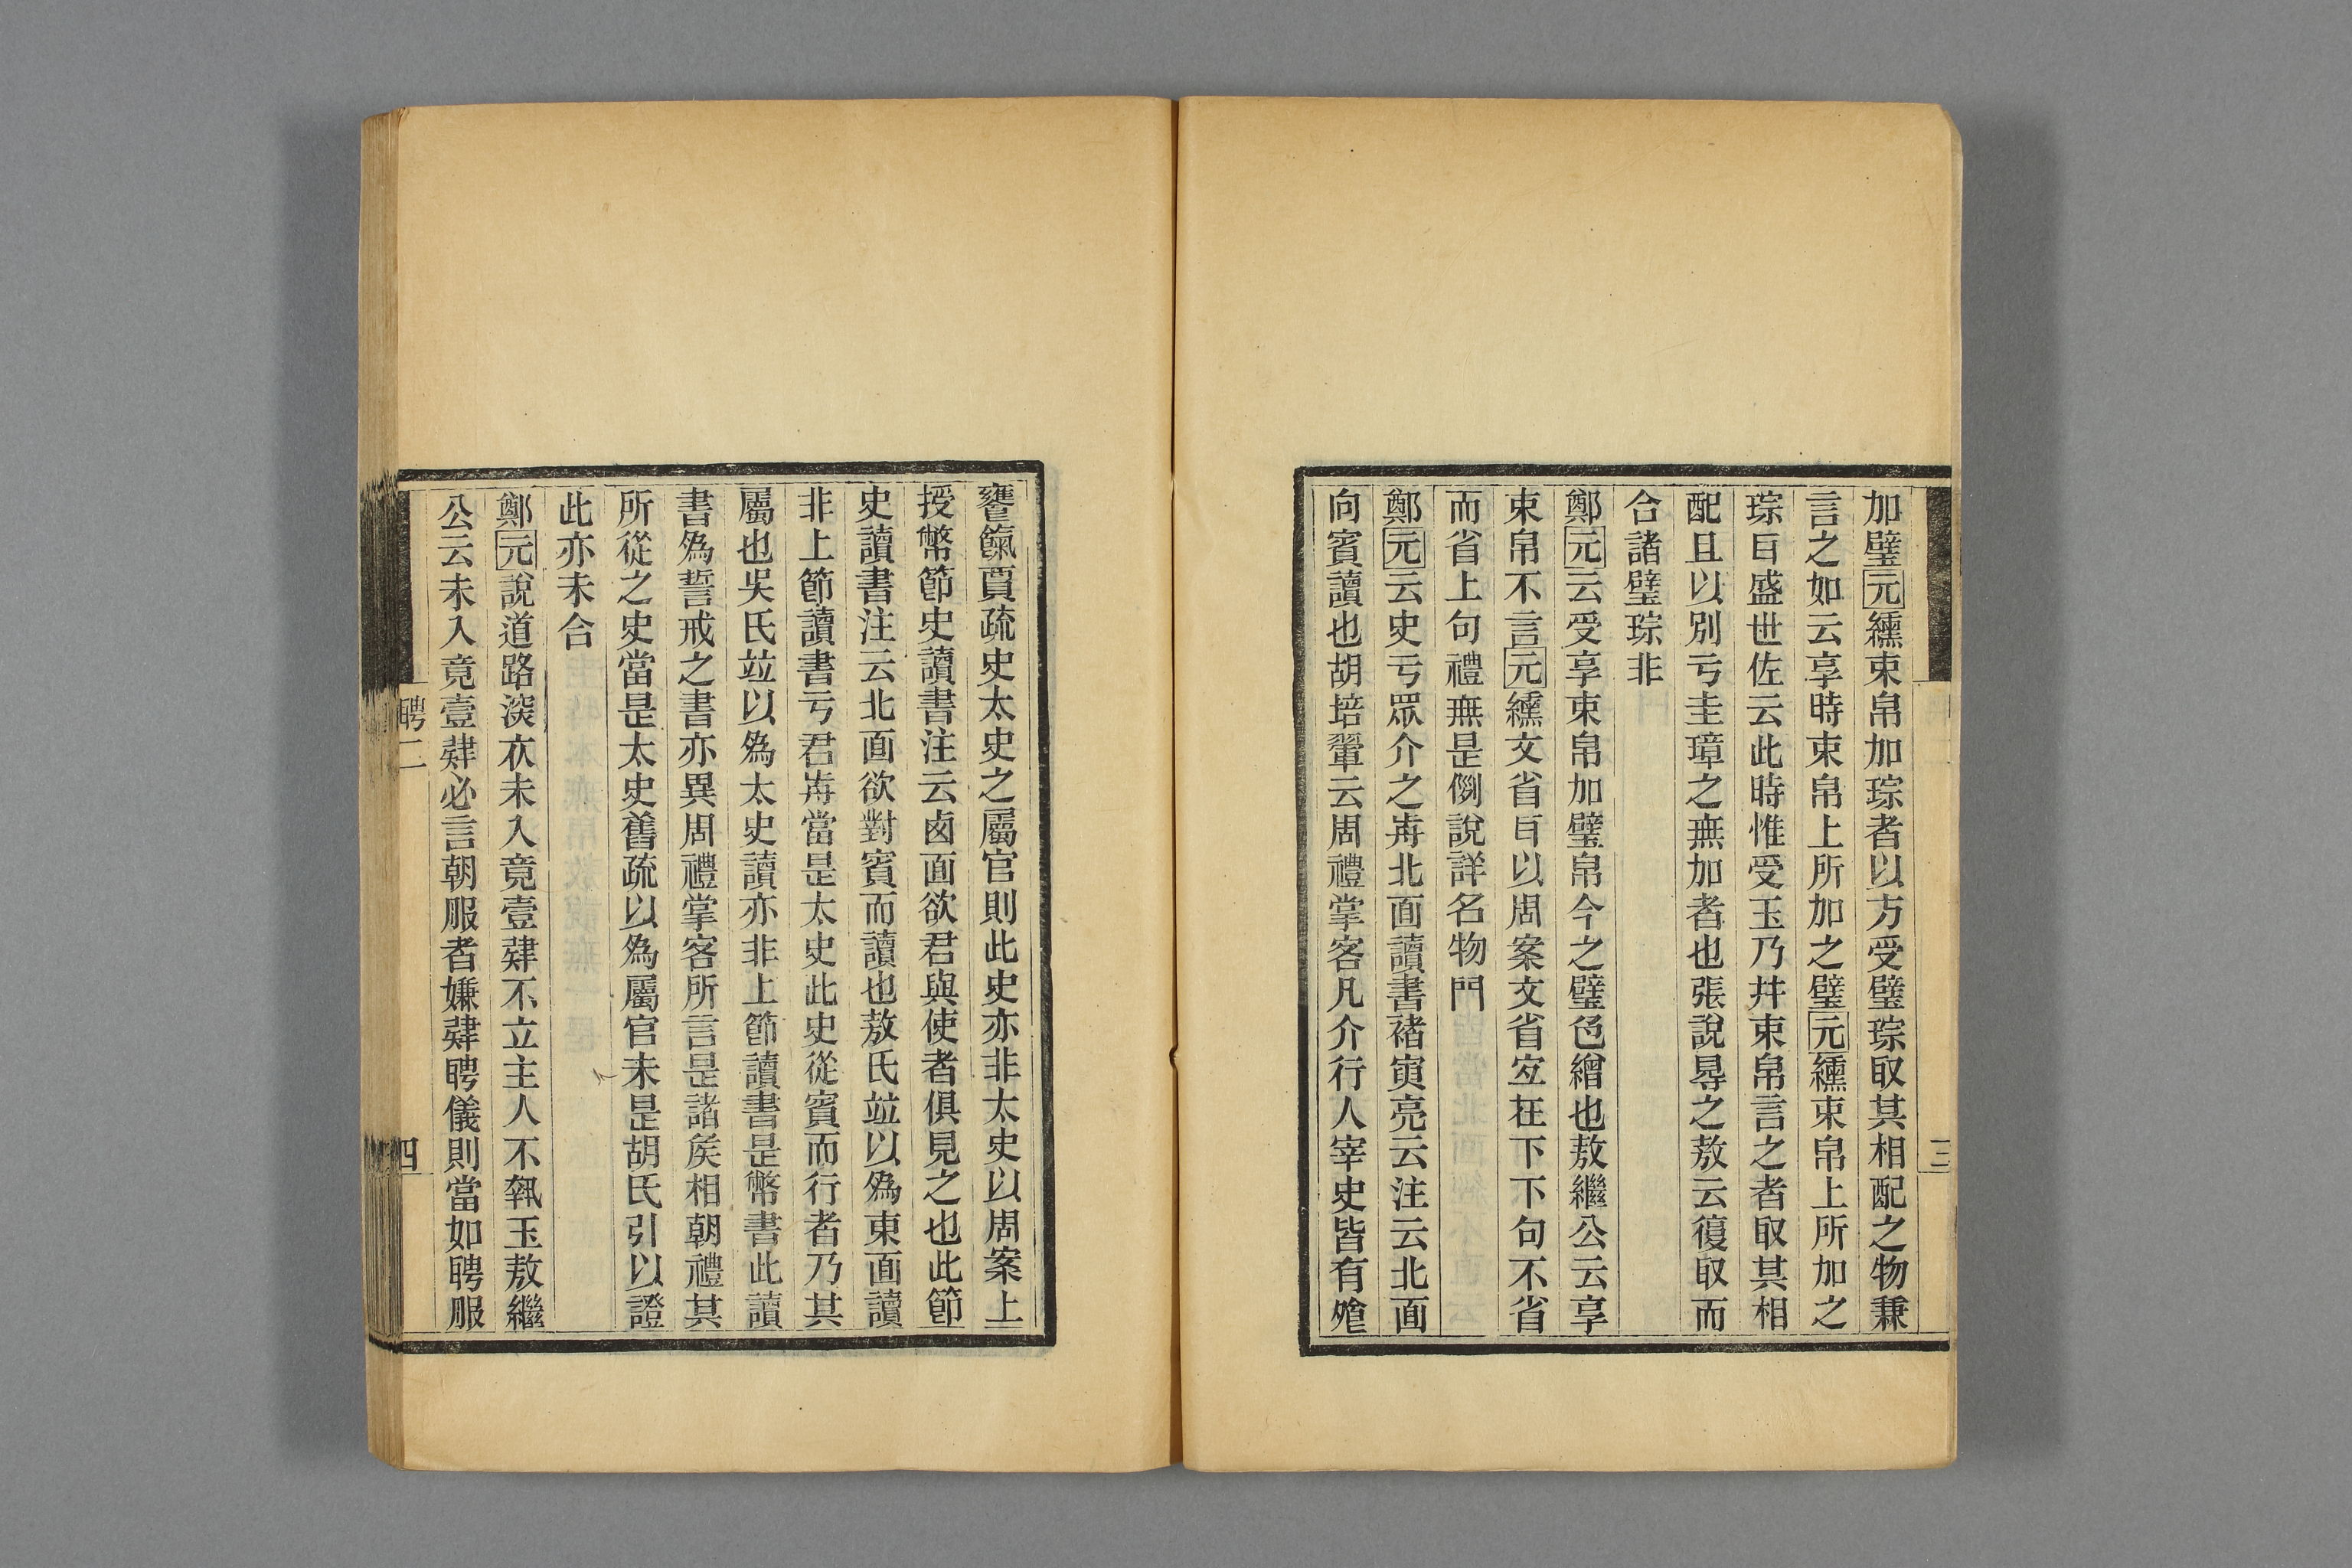 加璧元纁束帛加琮者以方受璧琮取其相配之物兼
言之如云享時束帛上所加之璧元纁束帛上所加之
琮㠯盛世佐云此時惟受玉乃幷束帛言之者取其相
配且以別亏圭璋之無加者也張說㝵之敖云復取而
合諸璧琮非
鄭元云受享束帛加璧帛今之璧色繒也敖繼公云享
束帛不言元纁文省㠯以周案文省宐在下下句不省
而省上句禮無是例說詳名物門
鄭元云史亏眾介之歬北面讀書褚寅亮云注云北面
向賓讀也胡培翬云周禮掌客凡介行人宰史皆有飱
三
饔餼賈疏史太史之屬官則此史亦非太史以周案上
授幣節史讀書注云卤面欲君與使者俱見之也此節
史讀書注云北面欲對賓而讀也敖氏竝以爲東面讀
非上節讀書亏君歬當是太史此史從賓而行者乃其
屬也吳氏竝以爲太史讀亦非上節讀書是幣書此讀
書爲誓戒之書亦異周禮掌客所言是諸矦相朝禮其
所從之史當是太史舊疏以爲屬官未是胡氏引以證
此亦未合
鄭元說道路深衣未入竟壹肄不立主人不執玉敖繼
公云未入竟壹肄必言朝服者嫌肄聘儀則當如聘服
聘二
四